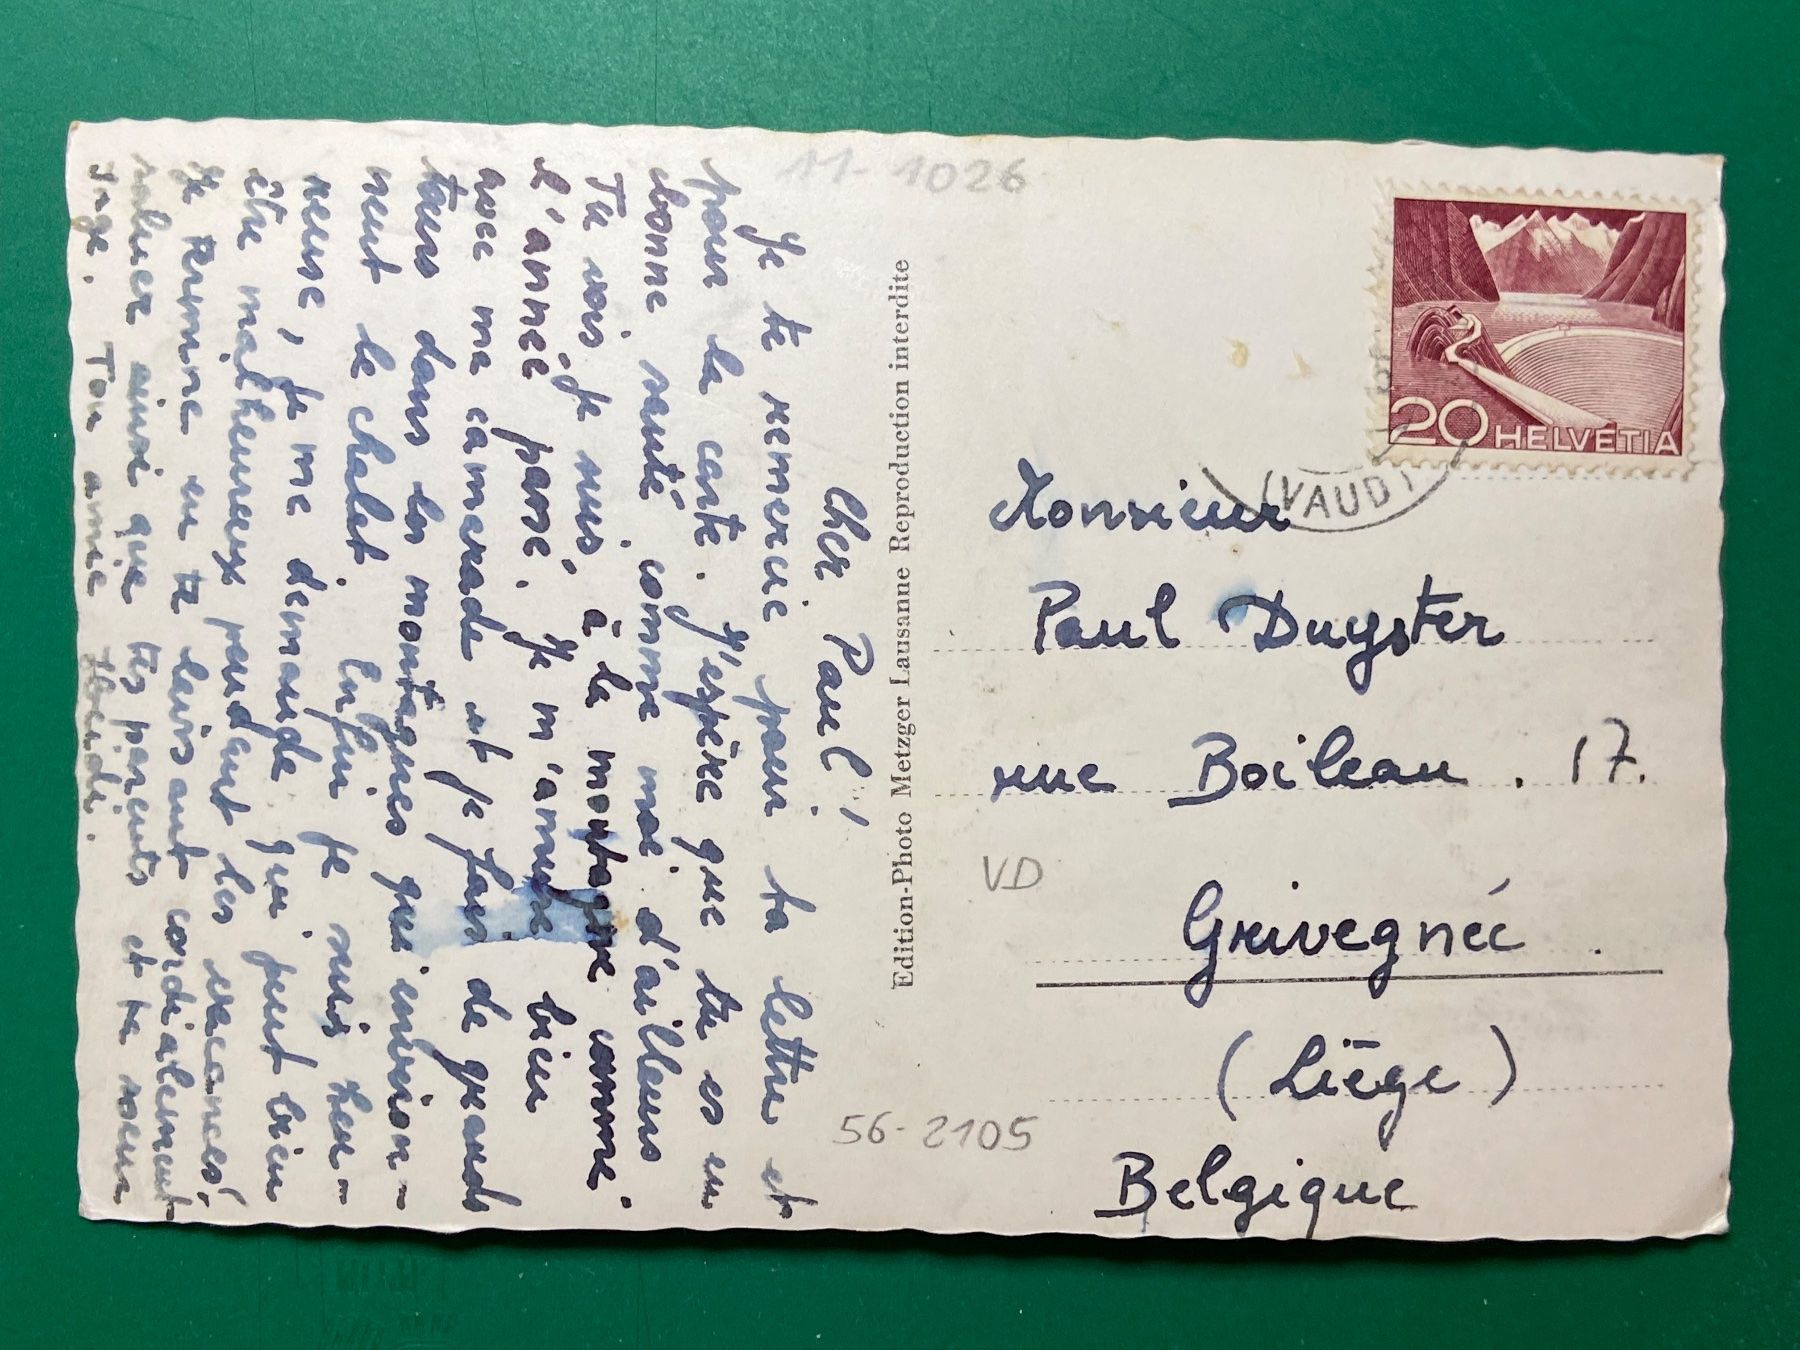 Cher Paul !
Je te remercie pour ta lettre et
pour la carte. J'espère que tu es en
bonne santé comme moi d'ailleurs
Tu vois je suis à la montagne comme
l'année passé. Je m'amuse bien
avec ma camerade et je fais de grands
tours dans les montagnes qui environ-
nent le chalet. Enfin je suis heu-
reuse, je me demande qui peut bien
être malheureux pendant les vacances!
Je termine en te laissant cordialement
saluer ainsi que tes parents et ta soeur
Ton amie
Edition-Photo Metzger Lausanne Reproduction interdite
11-1026
20 HELVETIA
(VAUD)
Monsieur
Paul Duyster
rue Boileau . 17.
VD
Grivegnée .
(Liège)
56-2105
Belgique